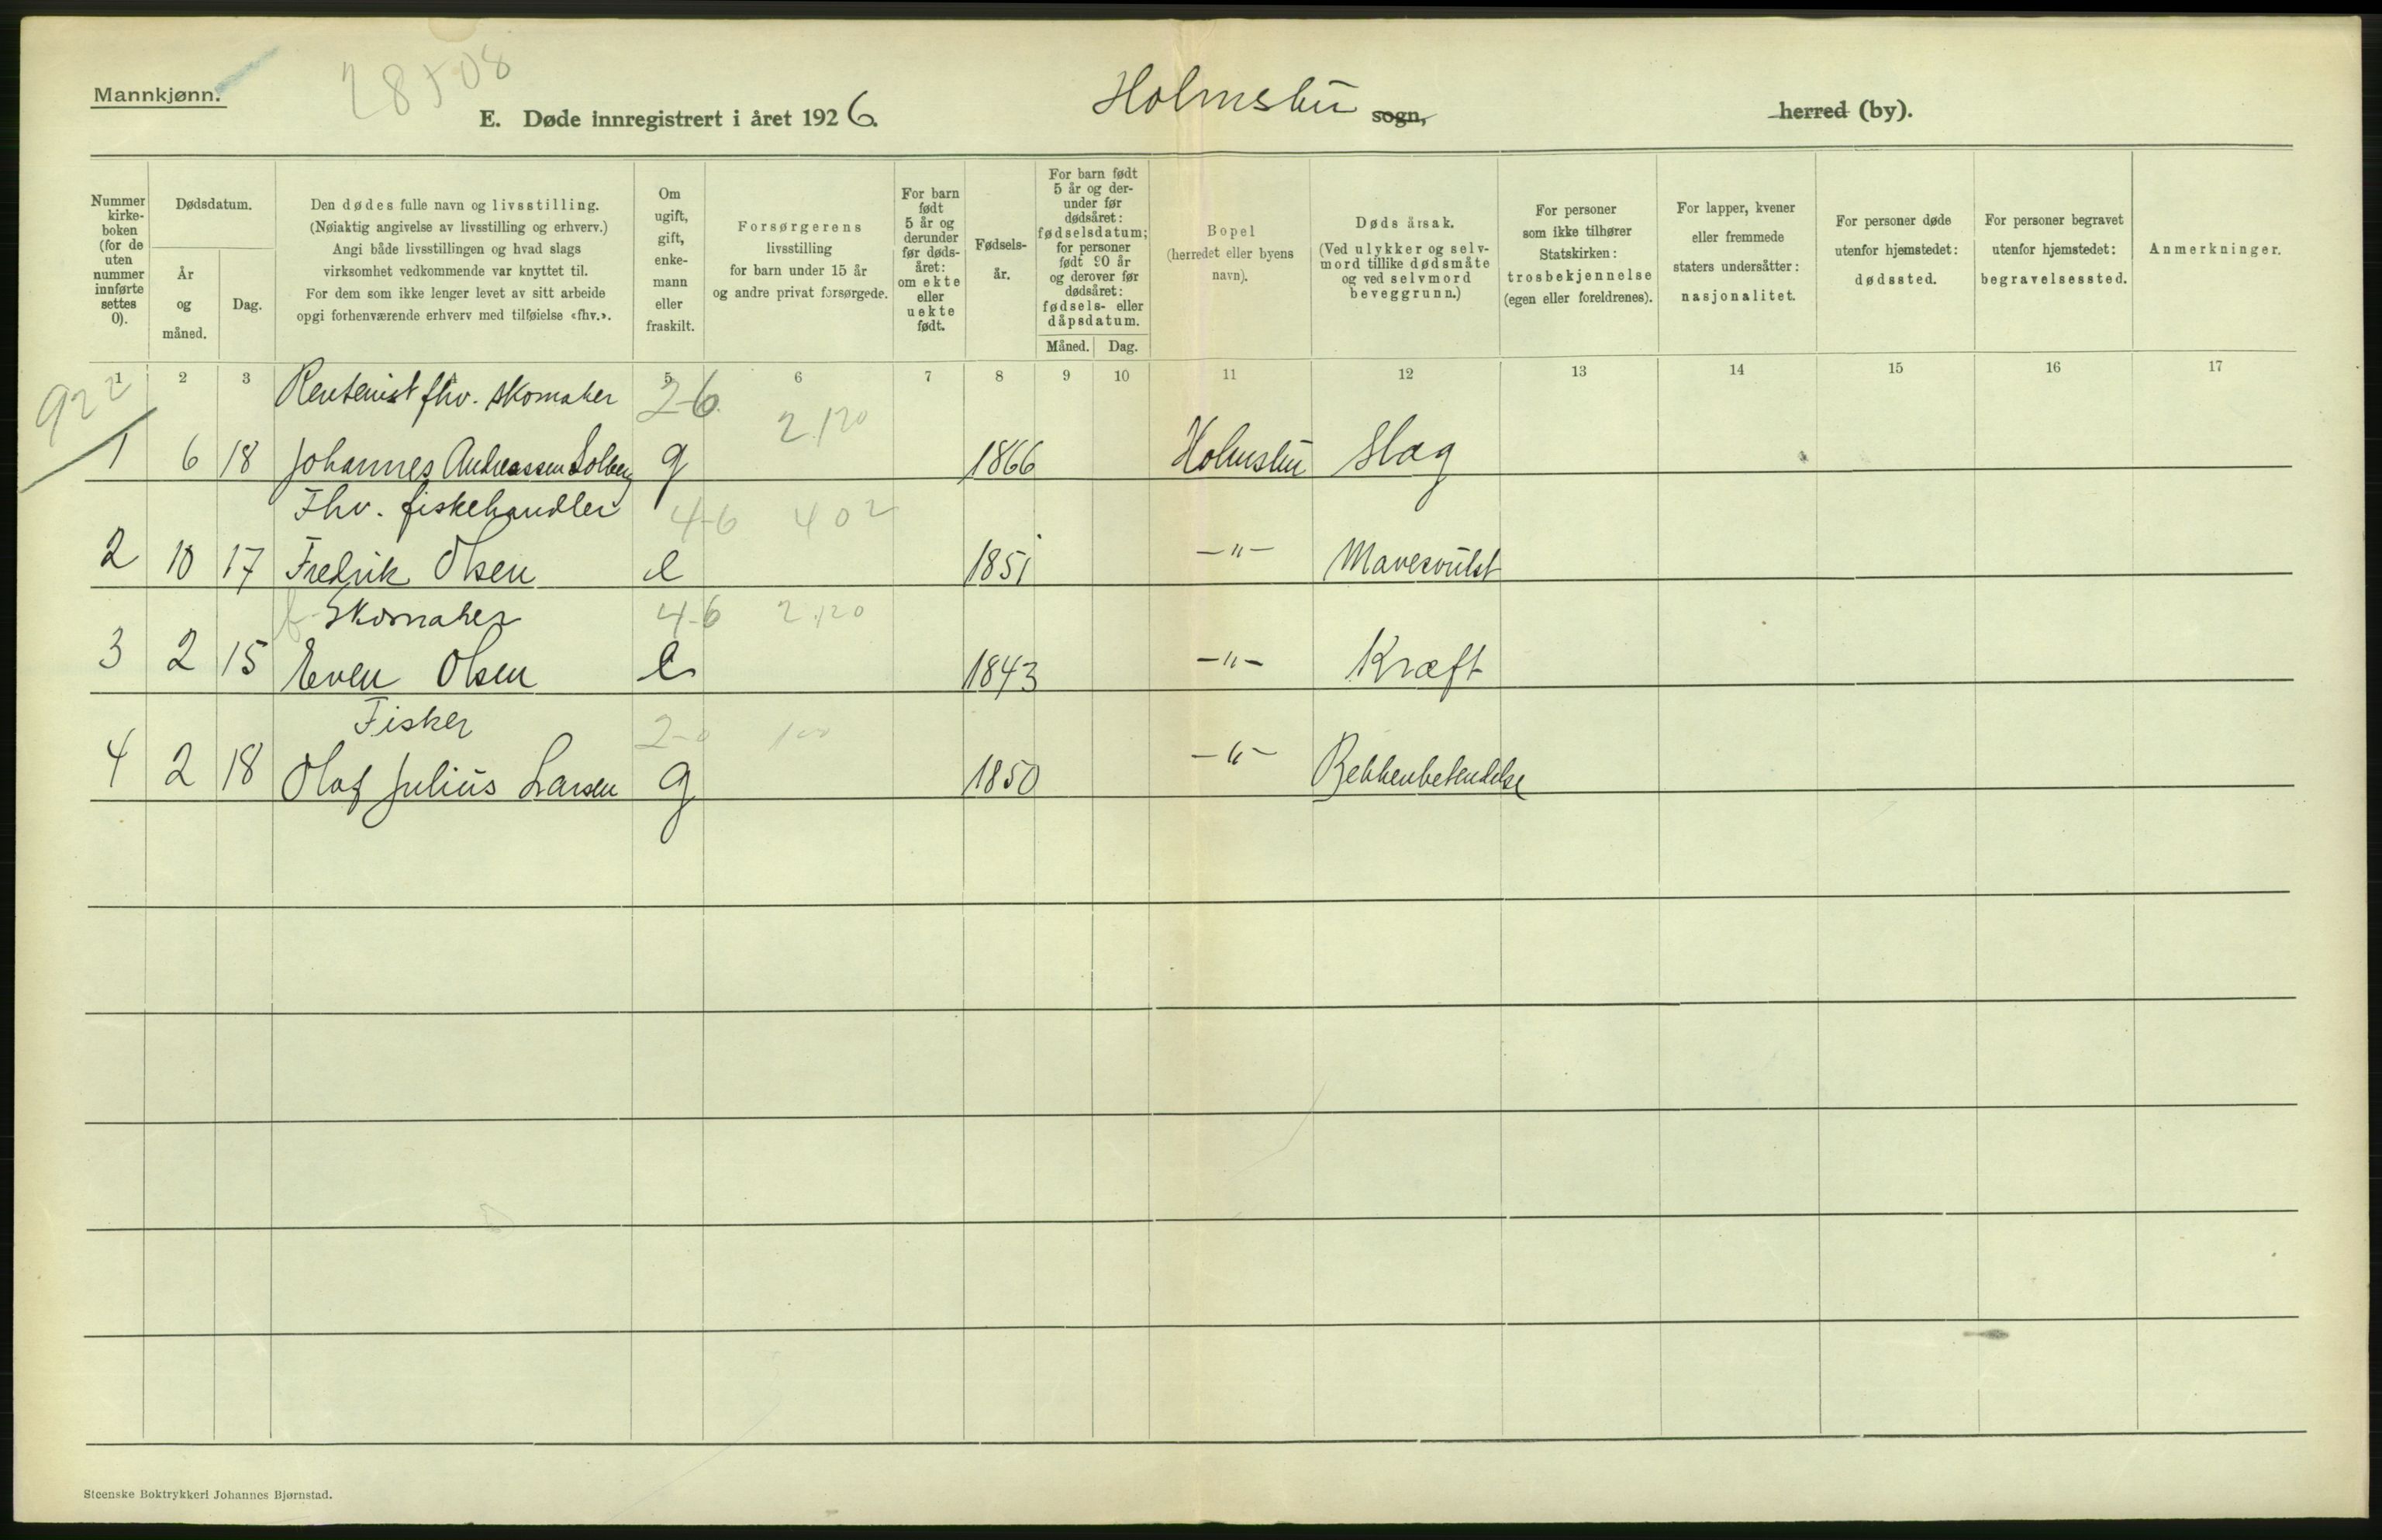 Mannkjønn.
28508
E. Døde innregistrert i året 1926.
Holmsbu sogn,
herred (by).
Nummer kirke- boken (for de uten nummer innførte settes 0).
Dødsdatum.
År og måned.
Dag.
Den dødes fulle navn og livsstilling.
(Nøiaktig angivelse av livsstilling og erhverv.)
Angi både livsstillingen og hvad slags
virksomhet vedkommende var knyttet til.
For dem som ikke lenger levet av sitt arbeide
opgi forhenværende erhverv med tilføielse «fhv.».
Om ugift, gift, enke- mann eller fraskilt.
Forsørgerens
livsstilling
for barn under 15 år
og andre privat forsørgede.
For barn født 5 år og derunder før døds- året: om ekte eller uekte født.
Fødsels- år.
For barn født 5 år og der- under før dødsåret: fødselsdatum; for personer født 90 år og derover før dødsåret: fødsels- eller dåpsdatum.
Måned. Dag.
Bopel
(herredet eller byens
navn).
Dødsårsak.
(Ved ulykker og selv-
mord tillike dødsmåte
og ved selvmord
beveggrunn.)
For personer
som ikke tilhører
Statskirken:
trosbekjennelse
(egen eller foreldrenes).
For lapper, kvener
eller fremmede
staters undersåtter:
nasjonalitet.
For personer døde
utenfor hjemstedet:
dødssted.
For personer begravet
utenfor hjemstedet:
begravelsessted.
Anmerkninger.
1 2 3 5 6 7 8 9 10 11 12 13 14 15 16 17
922
Rentenist fhv. skomaker 2-6 2.120
1 6 18 Johannes Andreassen Solberg g 1866 Holmsbu Slag
Fhv. fiskehandler 4-6 402
2 10 17 Fredrik Olsen e 1851 -"- Mavesvulst
f. Skomaker 4-6 2.120
3 2 15 Even Olsen e 1843 -"- Kræft
Fisker 2-0 100
4 2 18 Olaf Julius Larsen g 1850 -"- Bekkenbetendelse
Steenske Boktrykkeri Johannes Bjørnstad.